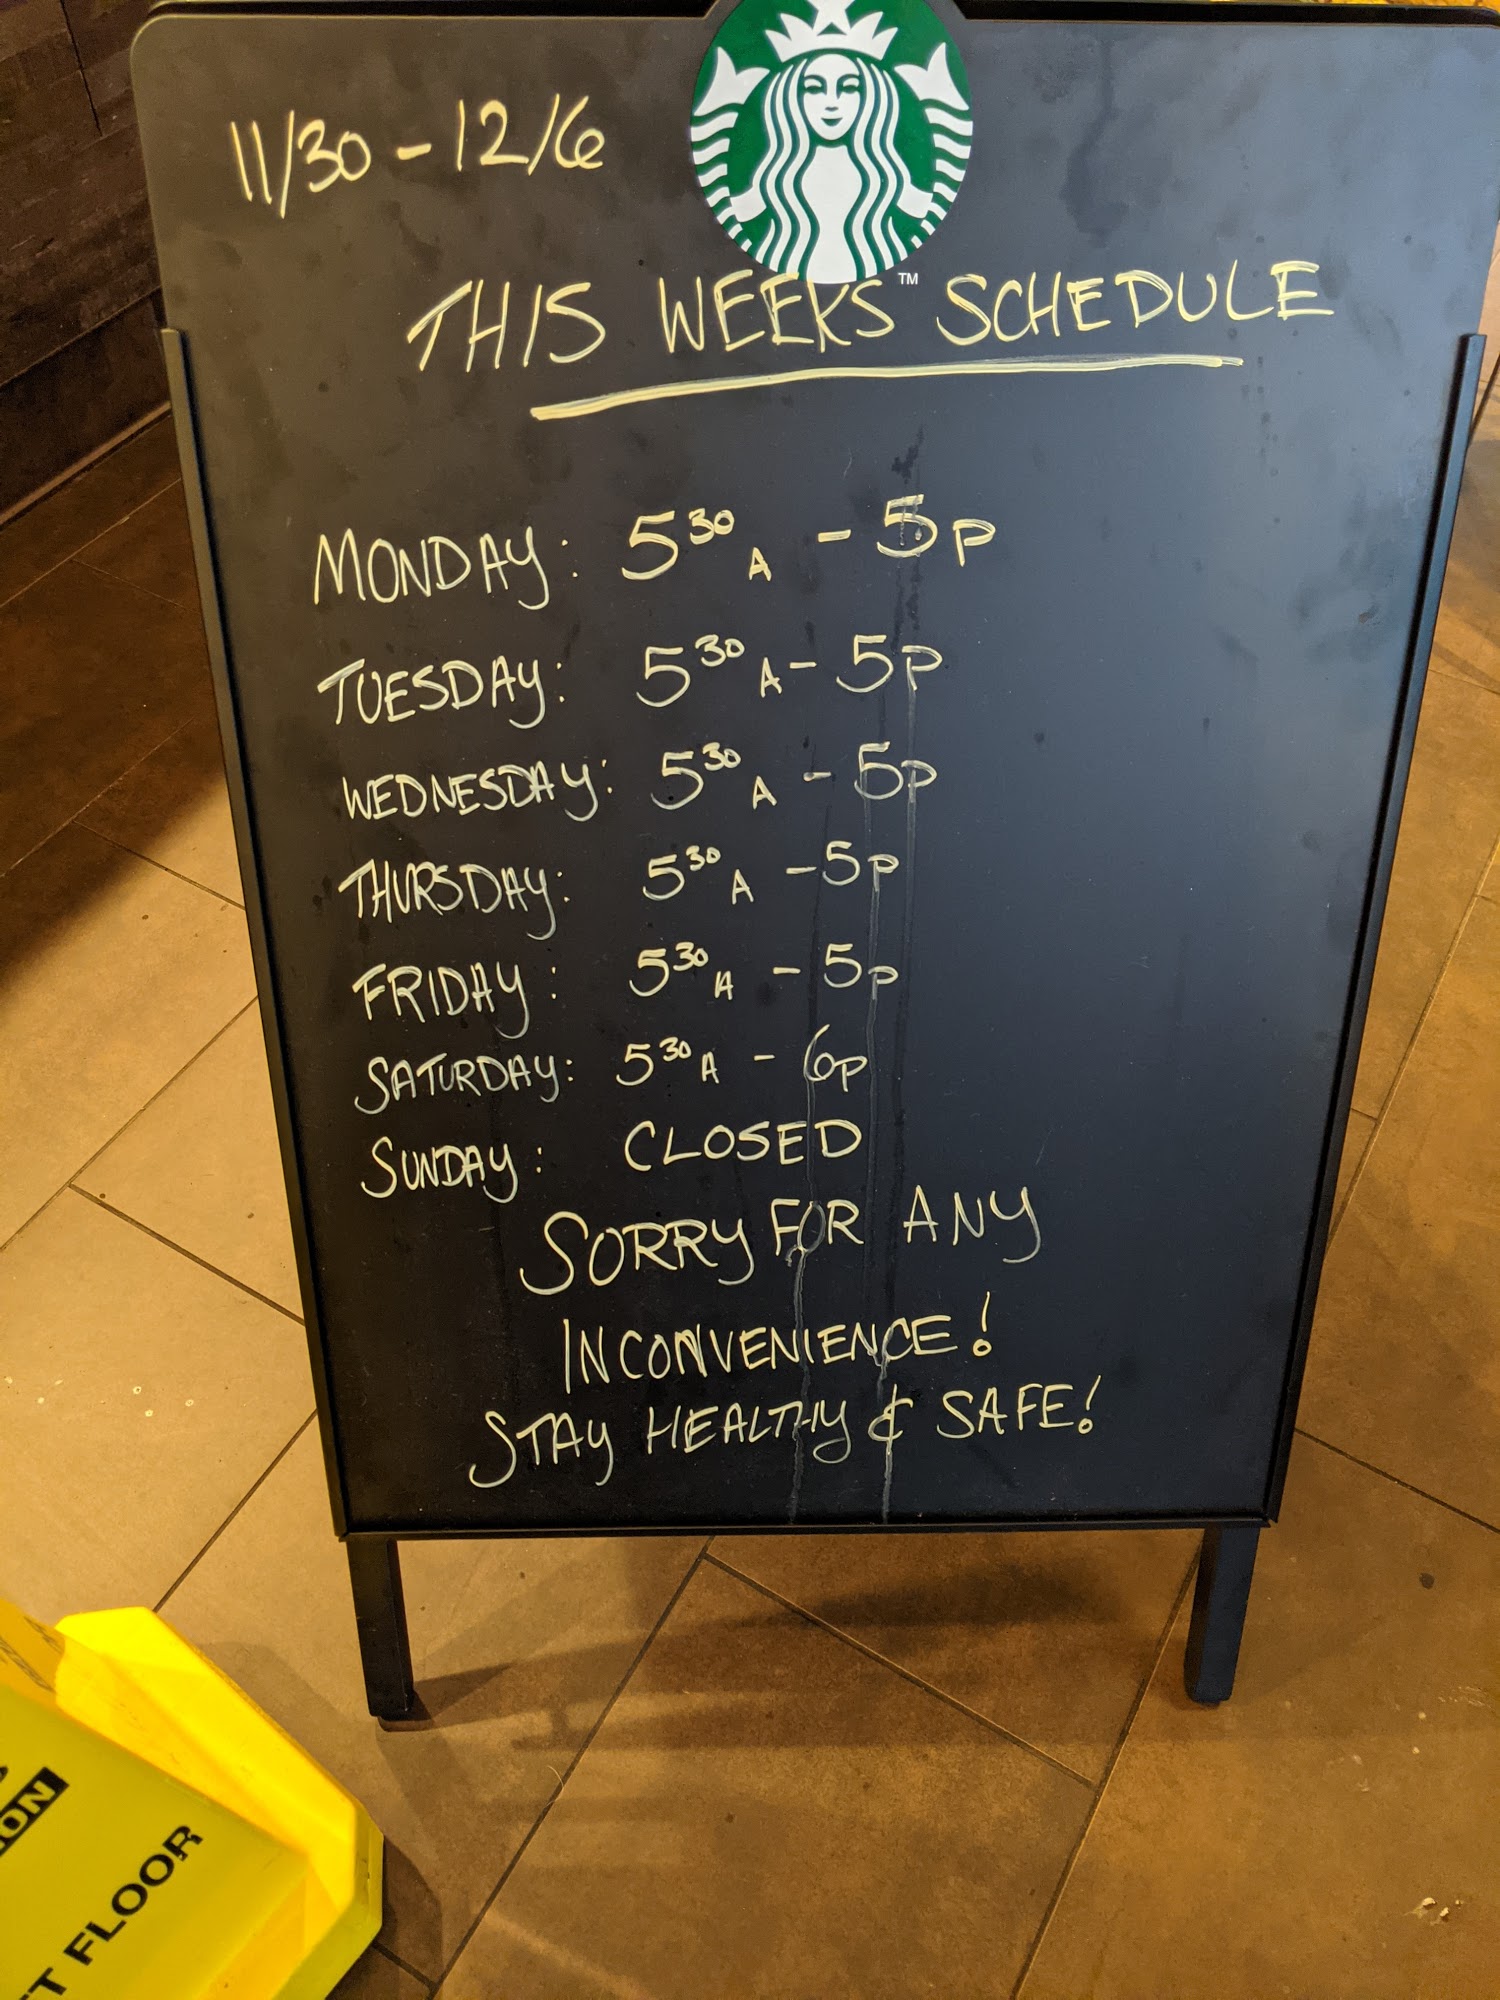 11/30 - 12/6
TM
THIS WEEKS SCHEDULE
MONDAY: 5 30 A - 5P
TUESDAY: 5 30 A - 5P
WEDNESDAY: 5 30 A - 5P
THURSDAY: 5 30 A - 5P
FRIDAY: 5 30 A - 5P
SATURDAY: 5 30 A - 6P
SUNDAY: CLOSED
SORRY FOR ANY
INCONVENIENCE!
STAY HEALTHY & SAFE!
FLOOR